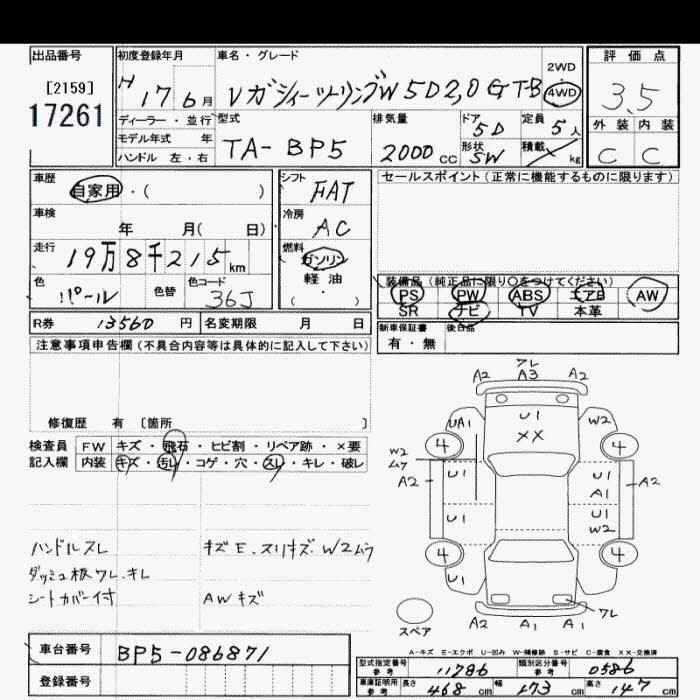 出品番号
[2159]
17261
初度登録年月
H 17 6 月
ディーラー・並行
モデル年式 年
ハンドル 左・右
車名・グレード
レガシィーツーリングW 5D 2,0 GT-B
2WD
4WD
評価点
3.5
外装 内装
C C
型式
TA-BP5
排気量
2000 cc
ドア 5D
形状 SW
定員 5人
積載 kg
車歴
自家用・( )
車検
年 月( 日)
走行
19万8千215 km
色
パール
色替
色コード
36J
シフト
FAT
冷房
AC
燃料
ガソリン
軽油
( )
セールスポイント(正常に機能するものに限ります)
装備品(純正品に限り○をつけてください)
PS PW ABS エアB AW
SR ナビ TV 本革
新車保証書
有・無
後日品
R券 13560 円
名変期限 月 日
注意事項申告欄(不具合内容等は具体的に記入して下さい)
修復歴 有〔箇所 〕
検査員
記入欄
FW キズ・飛石・ヒビ割・リペア跡・×要
内装 キズ・汚れ・コゲ・穴・スレ・キレ・破レ
ハンドルスレ
ダッシュ板ワレ.キレ
シートカバー付
キズE.スリキズ.W2ムラ
AWキズ
ワレ
A2 A3 A2
U1
XX
UA1
W2
4 4
W2
ムラ
A2
U1
U1
A1
A2
U1
U1
W2
4 4
U1
ワレ
A2 A1 A1
スペア
A-キズ E-エクボ U-凹み W-補修跡 S-サビ C-腐食 XX-交換済
車台番号
BP5-086871
登録番号
型式指定番号
参考
11786
類別区分番号
参考
0586
車庫証明用
参考
長さ 468 cm
幅 173 cm
高さ 147 cm